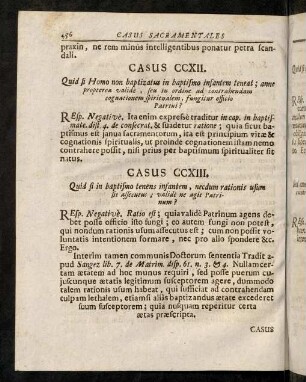 456 CASUS SACRAMENTALES
praxin, ne rem minùs intelligentibus ponatur petra scan-
dali.
CASUS CCXII.
Quid si Homo non baptizatus in baptismo infantem teneat; anne
propterea validè, seu in ordine ad contrahendam
cognationem spiritualem, fungitur officio
Patrini?
REsp. Negativè, Ita enim expressè traditur in cap. in baptis-
mate. dist. 4. de consecrat. & suadetur ratione; quia sicut bap-
tismus est janua sacramentorum, ita est principium vitæ &
cognationis spiritualis, ut proinde cognationem istam nemo
contrahere possit, nisi prius per baptismum spiritualiter sit
natus.
CASUS CCXIII.
Quid si in baptismo tenens infantem, necdum rationis usum
sit assecutus; validè ne agit Patri-
num?
REsp. Negativè, Ratio est; quia validè Patrinum agens de-
bet posse officio isto fungi; eo autem fungi non potest,
qui nondum rationis usum assecutus est; cum non possit vo-
luntatis intentionem formare, nec pro allo spondere &c.
Ergo.
Interim tamen communis Doctorum sententia Tradit a-
pud Sanzez lib. 7. de Matrim. disp. 61. n. 3. & 4. Nullam cer-
tam ætatem ad hoc munus requiri, sed posse puerum cu-
juscunque ætatis legitimum susceptorem agere, dummodo
talem rationis usum habeat, qui sufficiat ad contrahendam
culpam lethalem, etiamsi aliàs baptizandus ætate excederet
suum susceptorem; quia nusquam reperitur certa
ætas præscripta.
CASUS